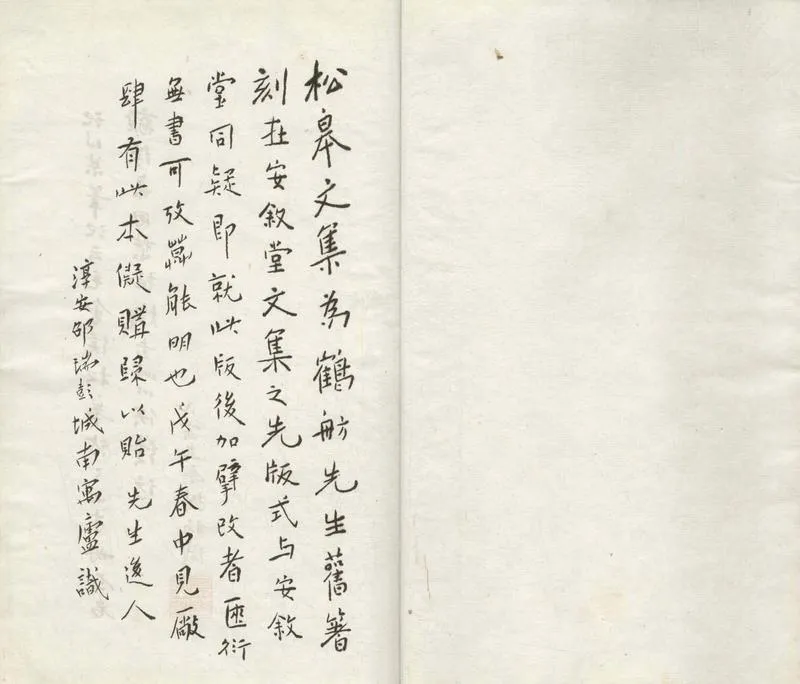 松皋文集為鶴舫先生舊箸
刻在安敘堂文集之先版式与安敘
堂同疑即就此版後加擘改者匧衍
無書可攷莫能明也戊午春中見厰
肆有此本儗購歸以貽先生後人
淳安邵瑞彭城南寓廬識